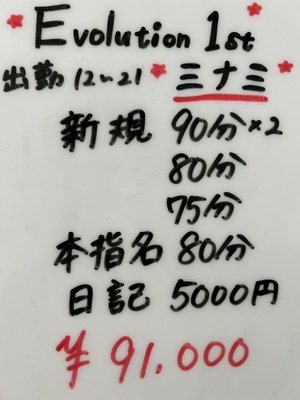 Evolution 1st
出勤 12〜21 三ナ三
新規 90分×2
80分
75分
本指名 80分
日記 5000円
¥91.000